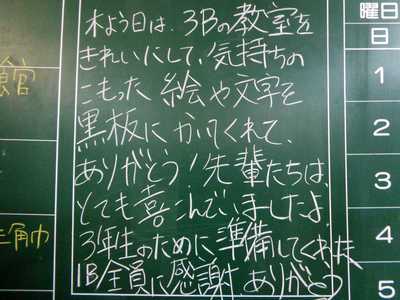 木よう日は、3Bの教室を
きれいにして、気持ちの
こもった絵や文字を
黒板にかいてくれて、
ありがとう!先輩たちは、
とても喜こんでいましたよ。
3年生のために準備してくれた
1B全員に感謝。ありがとう
館
三角巾
曜日
日
1
2
3
4
5